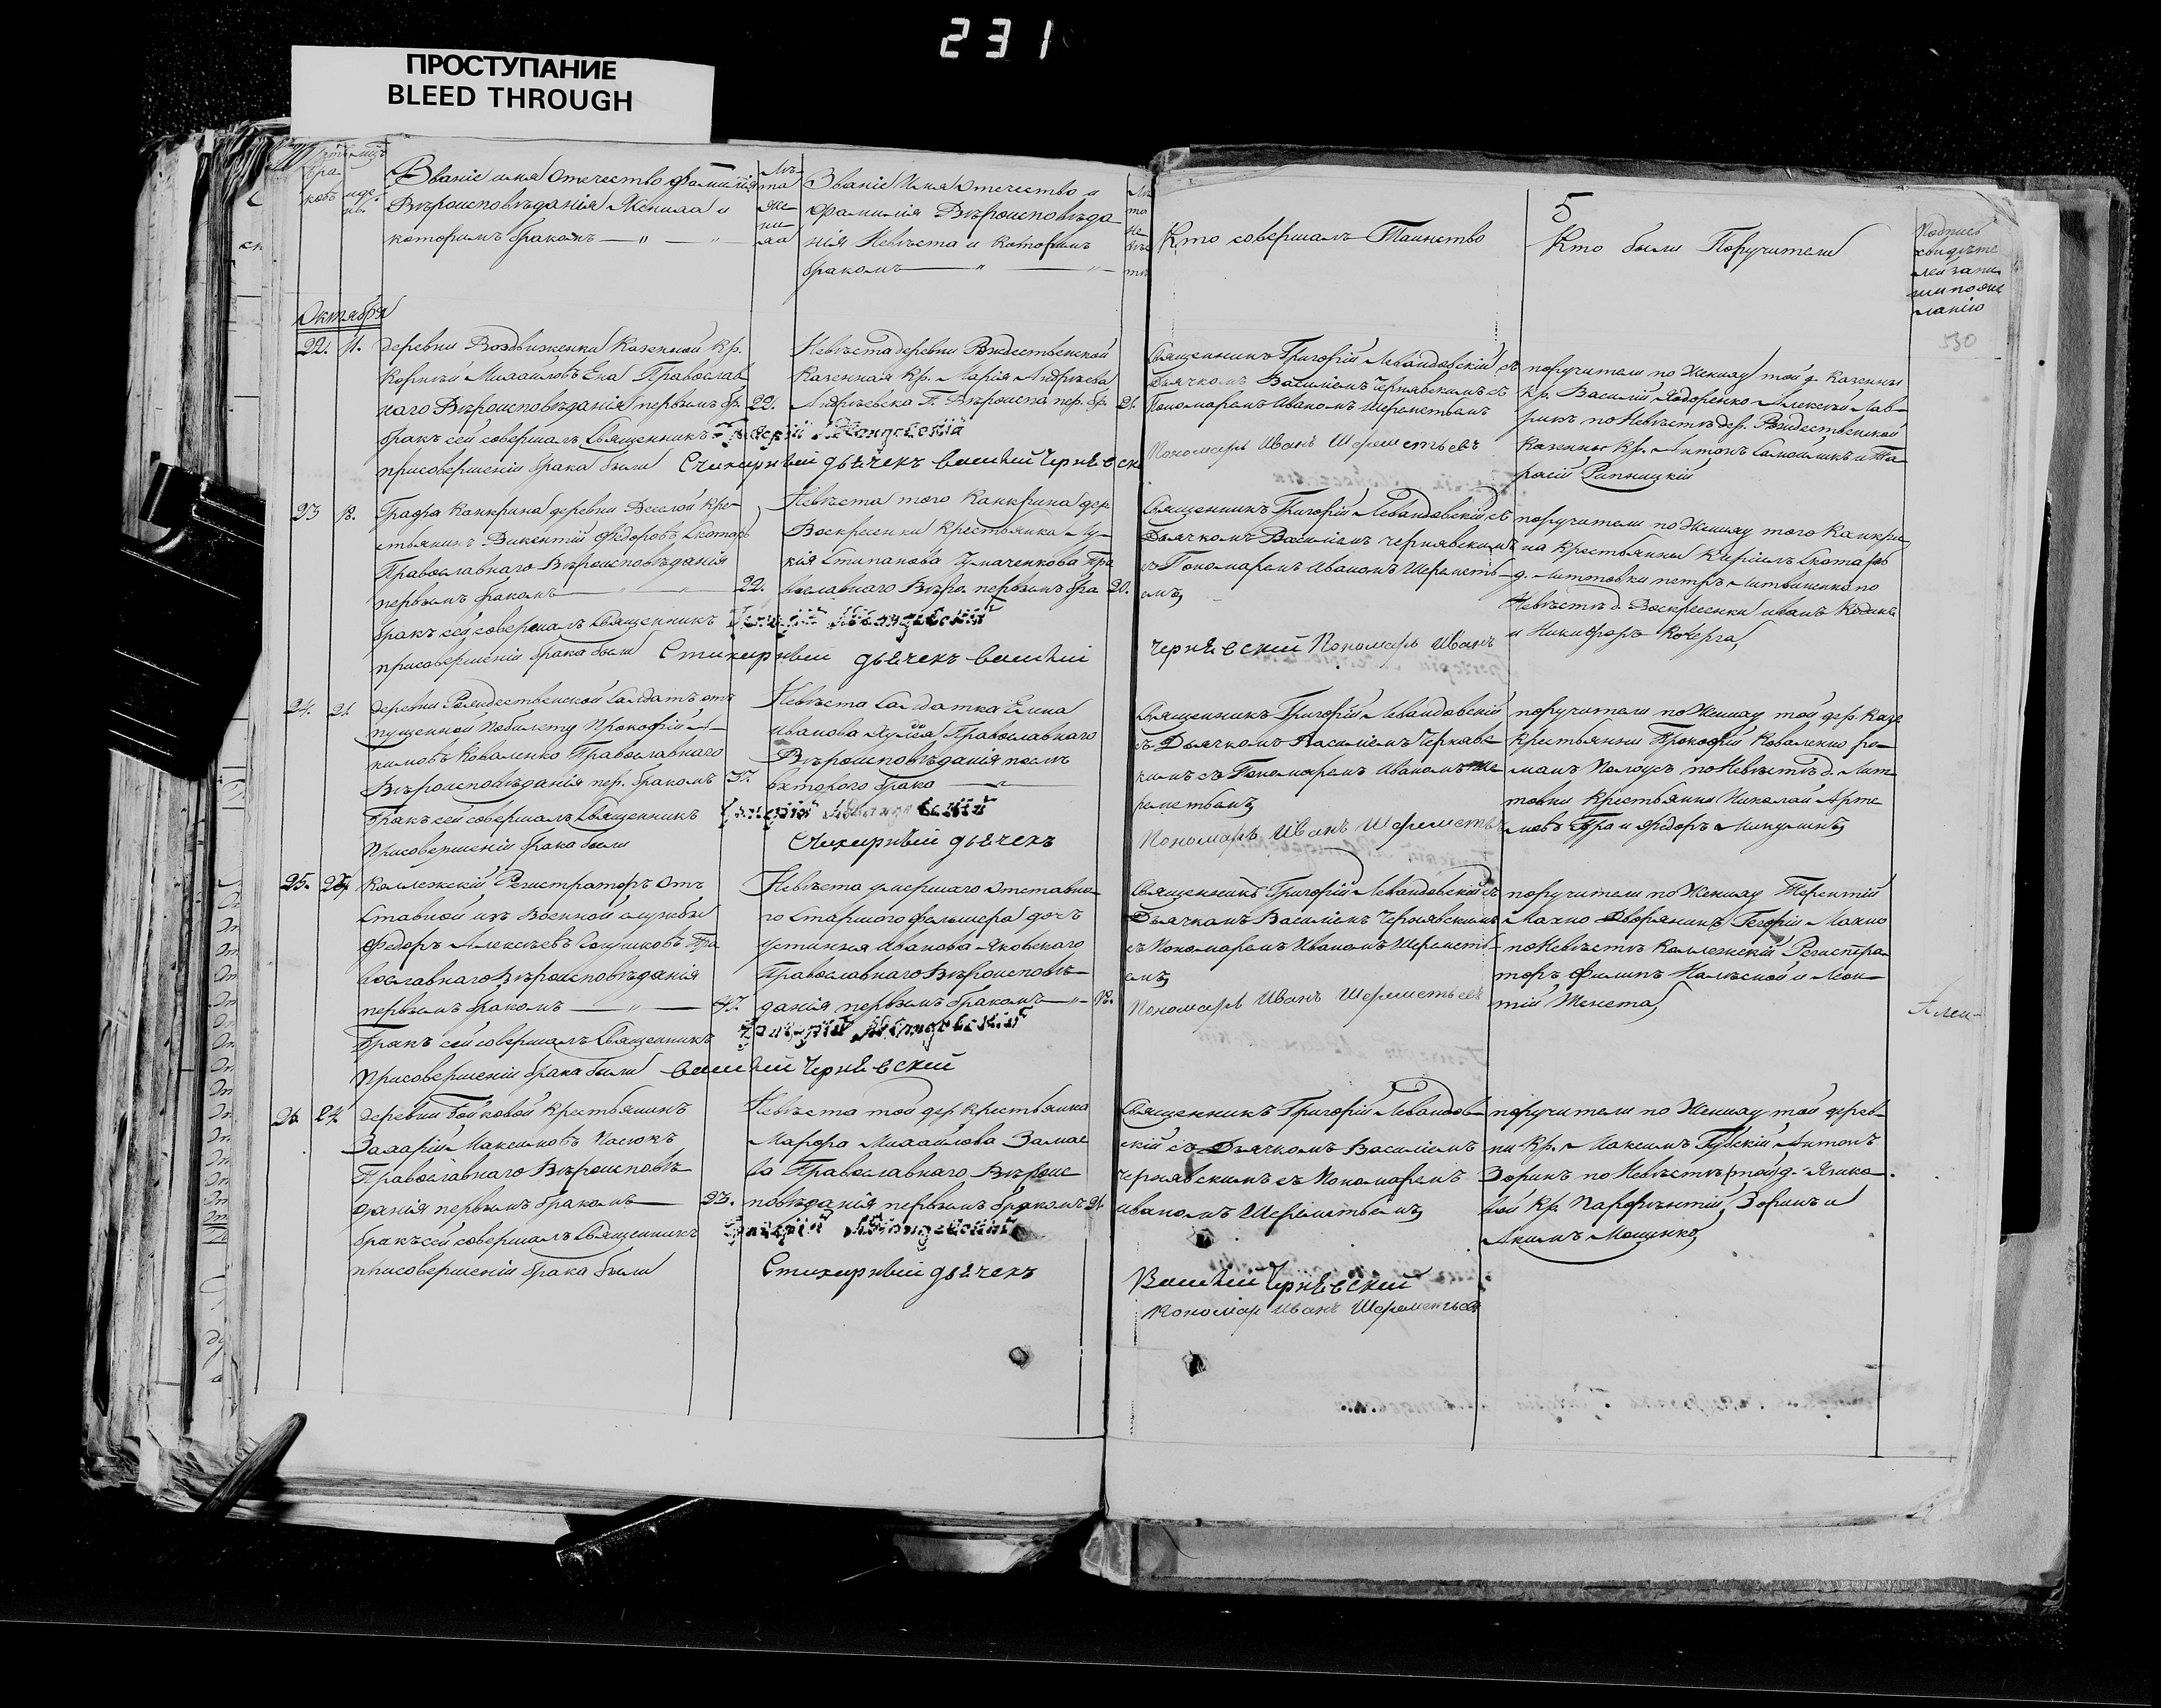 231
ПРОСТУПАНИЕ
BLEED THROUGH
Званіе имя Отечество Фамилія
Вѣроисповѣданія Жениха и
которимъ бракомъ
Званіе Имя Отечество и
Фамилія Вѣроисповѣда
нія Невѣста и которимъ
бракомъ
Кто совершалъ Таинство
5
Кто были Поручители
Подпись
свидѣте
лей запи
си по же
ланію
530
Октября
22. 11. деревни Воздвиженки Казенной Кр.
Корнѣй Михайловъ Ена Православ
наго Вѣроисповѣданія первымъ бр. 22.
бракъ сей совершалъ Священникъ Григорій Левандовскій
присовершеніи брака были Стихарный дьячекъ Василий Чернявски
Невѣста деревни Рождественской
Казенная Кр. Марія Андрѣева
21.
Священникъ Григорій Левандовскій съ
Дьячкомъ Василіемъ Чернявскимъ съ
Пономаремъ Иваномъ Шереметьемъ
Пономарь Иванъ Шереметьевъ
поручители по Жениху той д. Казенны
Кр. Василій Ядоренко Алексѣй Лав-
рикъ по Невѣстѣ дер. Рождественской
Казенны Кр. Антонъ Самойликъ и Та-
расій Рипницкій
23 18. Графа Канкрина деревни Веселой Кре-
стьянинъ Викентій Федоровъ Скотарь
Православнаго Вѣроисповѣданія
первымъ бракомъ 22.
бракъ сей совершалъ Священникъ Григорій Левандовскій
присовершеніи брака были Стихарный дьячекъ Василий
Невѣста того Канкрина дер.
Воскресенки Крестьянка Лу-
кія Стипанова Чумаченкова Пра
вославнаго Вѣро. первымъ бра 20.
Священникъ Григорій Левандовскій съ
Дьячкомъ Василіемъ Чернявскимъ
съ Пономаремъ Иваномъ Шереметь-
емъ
Чернявский Пономарь Иванъ
поручители по Жениху того Канкри-
на Крестьянны Кирилъ Скотарь
д. Литтовки петръ Литвиненко по
Невѣстѣ д. Воскресенки иванъ
и Никифоръ Кочерга
24. 21. деревни Рождественской Салдатъ от-
пущенной побилету Прокофій А-
кимовъ Коваленко Православнаго
Вѣроисповѣданія пер. бракомъ 37.
Бракъ сей совершалъ Священникъ Григорій Левандовскій
Присовершеніи брака были Стихарный дьячекъ
Невѣста Салдатка Елена
иванова Православнаго
Вѣроисповѣданія послѣ
вхторого брака
Священникъ Григорій Левандовскій
съ Дьячкомъ Василіемъ Чернявс-
кимъ съ Пономаремъ Иваномъ Ше-
реметьемъ
Пономарь Иванъ Шереметье
поручители по Жениху той дер. Казе
Крестьянны Прокофій Коваленко ро-
манъ Палоусъ по Невѣстѣ д. Лит-
товки Крестьянны Николай Арте
мовъ и Федоръ Микулинъ
25. Коллежскій Регистраторъ От-
ставной изъ Военной службы
Федоръ Алексѣевъ Сопушковъ Пра
вославнаго Вѣроисповѣданія
первымъ бракомъ 47.
Бракъ сей совершалъ Священникъ Григорій Левандовскій
Присовершеніи брака были Василий Чернявский
Невѣста умершаго отставна-
го Старшого фельшера дочъ
устинія Иванова Яковскаго
Православнаго Вѣроисповѣ-
данія первымъ бракомъ 18.
Священникъ Григорій Левандовскій съ
Дьячкомъ Василіемъ Чернявскимъ
съ Пономаремъ Иваномъ Шереметь-
емъ
Пономарь Иванъ Шереметьевъ
поручители по Жениху Терентій
Махно Дворянинъ Георгій Махно
по Невѣстѣ Коллежскій Регистра
торъ Филипъ и Леон-
тій Женета
26. 24. деревни Бойковой Крестьянинъ
Захарій Максимовъ Пасюкъ
Православнаго Вѣроисповѣ-
данія первымъ бракомъ 23.
бракъ сей совершалъ Священникъ Григорій Левандовскій
присовершеніи брака были Стихарный дьячекъ
Невѣста той дер Крестьянка
Марфа Михайлова
Православнаго Вѣроис
повѣданія первымъ бракомъ 21.
Священникъ Григорій Левандов-
скій съ Дьячкомъ Василіемъ
Чернявскимъ съ Пономаремъ
иваномъ Шереметьемъ
Василий Чернявский
Пономар Иванъ Шереметьев
поручители по Жениху той дерев-
ни Кр. Максимъ Губскій Антонъ
Зоринъ по Невѣстѣ той д.
Кр. Парфентій Зоринъ и
Акимъ Мащенко